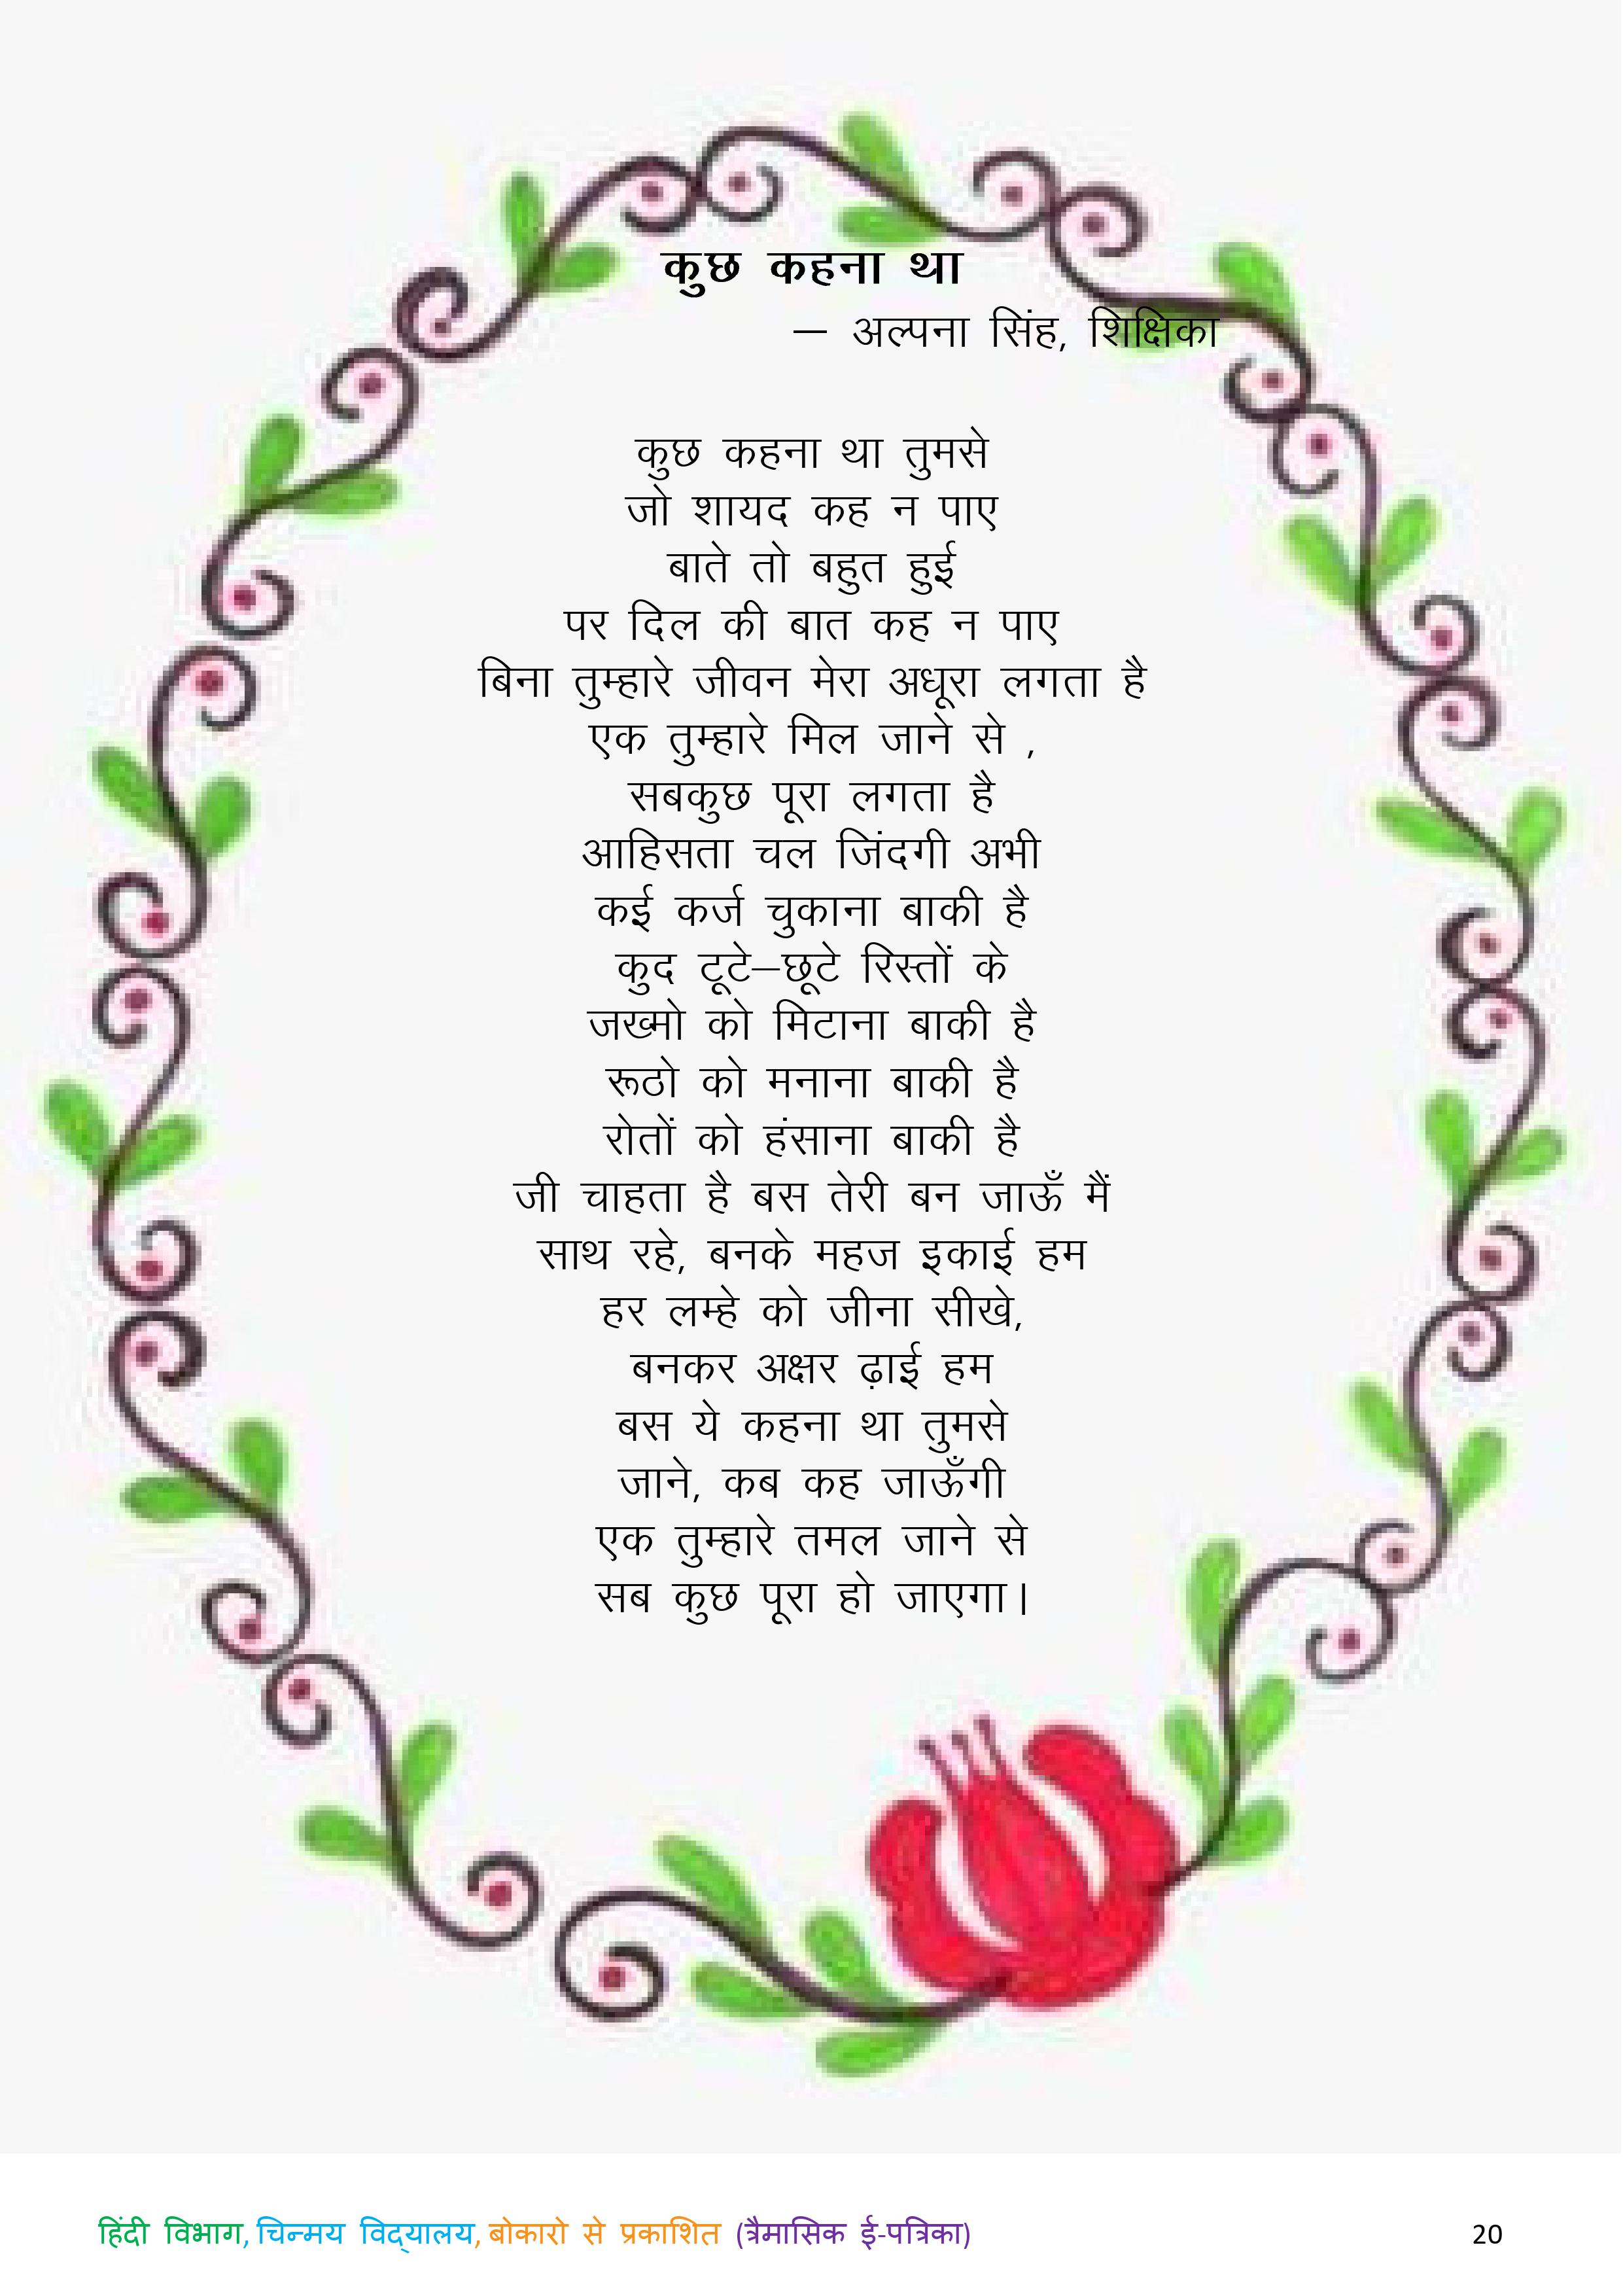 कुछ कहना था
– अल्पना सिंह, शिक्षिका
कुछ कहना था तुमसे
जो शायद कह न पाए
बाते तो बहुत हुई
पर दिल की बात कह न पाए
बिना तुम्हारे जीवन मेरा अधूरा लगता है
एक तुम्हारे मिल जाने से ,
सबकुछ पूरा लगता है
आहिसता चल जिंदगी अभी
कई कर्ज चुकाना बाकी है
कुद टूटे–छूटे रिस्तों के
जख्मो को मिटाना बाकी है
रूठो को मनाना बाकी है
रोतों को हंसाना बाकी है
जी चाहता है बस तेरी बन जाऊँ मैं
साथ रहे, बनके महज इकाई हम
हर लम्हे को जीना सीखे,
बनकर अक्षर ढ़ाई हम
बस ये कहना था तुमसे
जाने, कब कह जाऊँगी
एक तुम्हारे तमल जाने से
सब कुछ पूरा हो जाएगा।
हिंदी विभाग, चिन्मय विद्यालय, बोकारो से प्रकाशित (त्रैमासिक ई-पत्रिका) 20